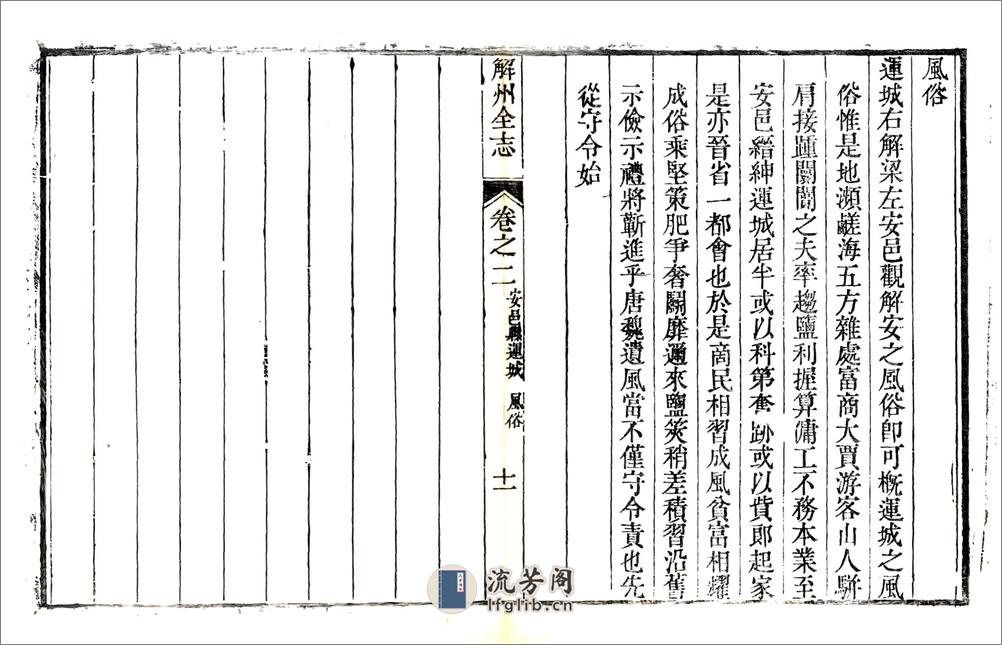 風俗
運城右解梁左安邑觀解安之風俗卽可槪運城之風
俗惟是地瀕鹺海五方雜處富商大賈游客山人駢
肩接踵闤闠之夫率趨鹽利握算傭工不務本業至
安邑縉紳運城居半或以科第奮跡或以貲郞起家
是亦晉省一都會也於是商民相習成風貧富相耀
成俗乘堅策肥爭奢鬭靡邇來鹽筴稍差積習沿舊
示儉示禮將蘄進乎唐魏遺風當不僅守令責也先
從守令始
解州全志
卷之二
安邑縣運城 風俗
十一
流芳阁
lfglib.cn